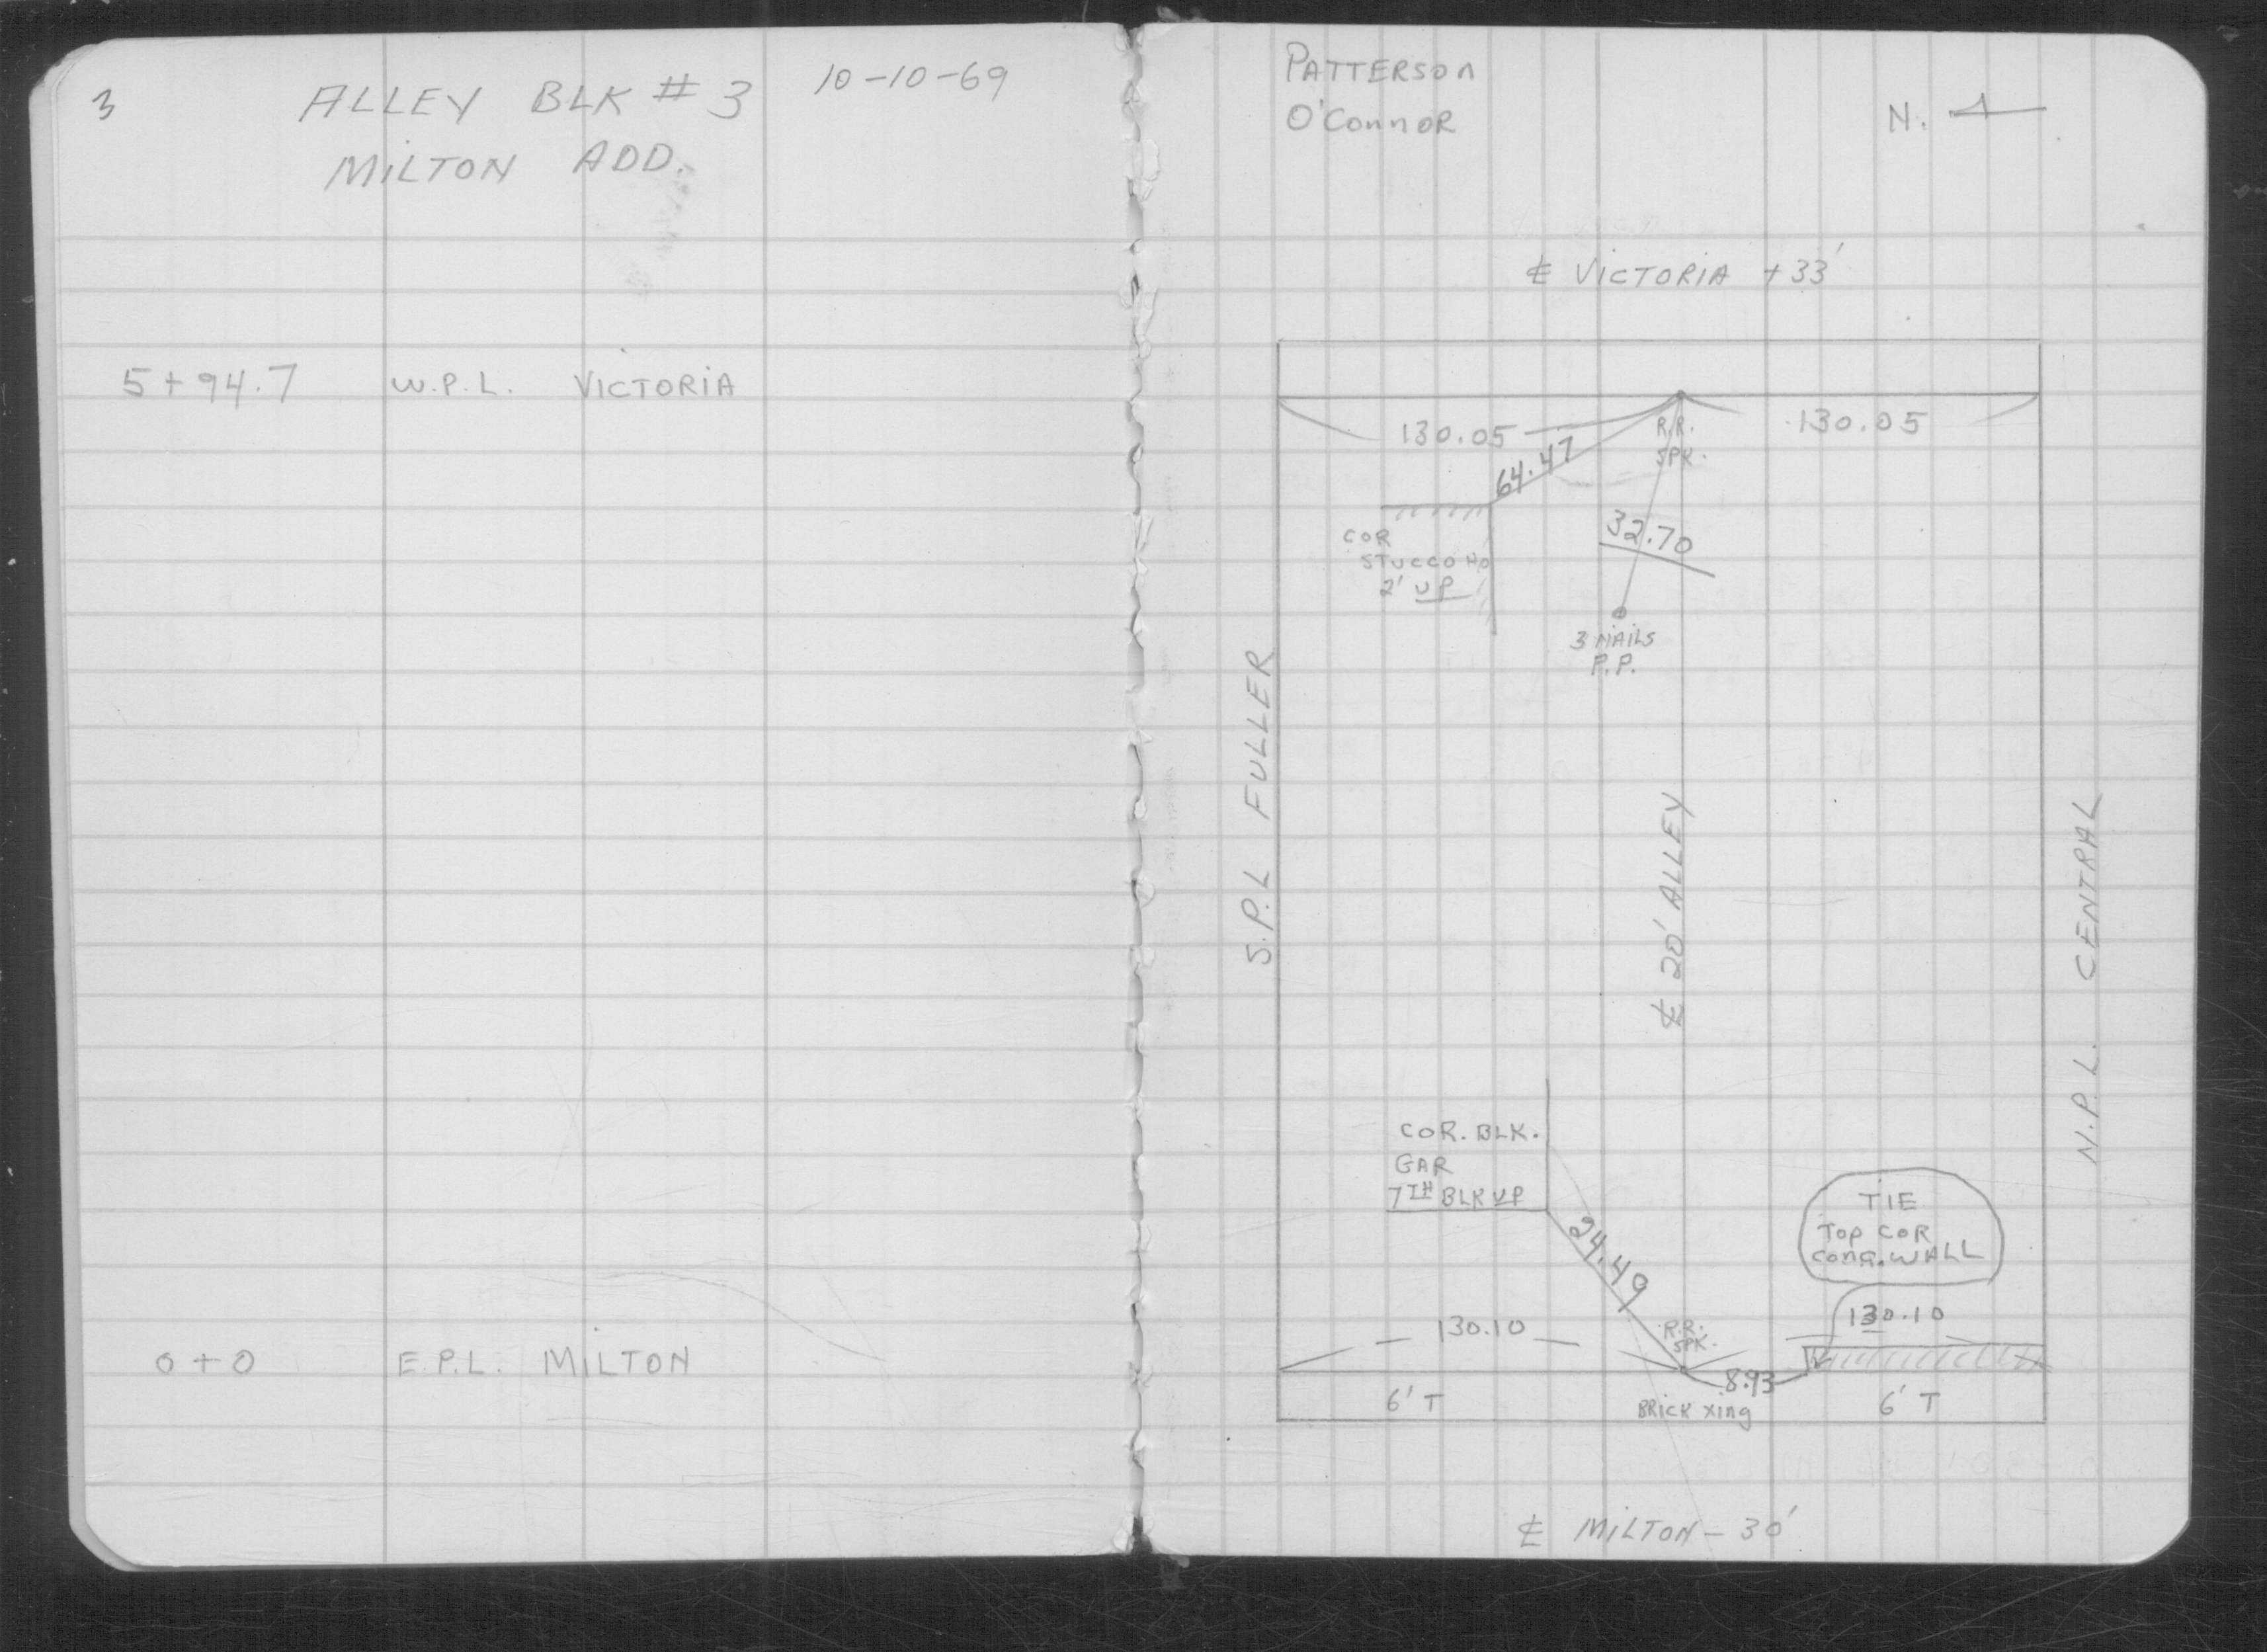 3
ALLEY BLK # 3
10-10-69
MILTON ADD.
5+94.7 W.P.L. VICTORIA
0+0 E.P.L. MILTON
PATTERSON
O'CONNOR
N.
℄ VICTORIA +33'
130.05
130.05
R.R.
SPK.
64.47
32.70
COR
STUCCO HO
2' UP
3 NAILS
P.P.
S.P.L FULLER
℄ 20' ALLEY
N.P.L. CENTRAL
COR. BLK.
GAR
7TH BLK UP
24.49
TIE
TOP COR
CONC. WALL
130.10
130.10
R.R.
SPK.
8.93
6' T
BRICK XING
6' T
℄ MILTON - 30'